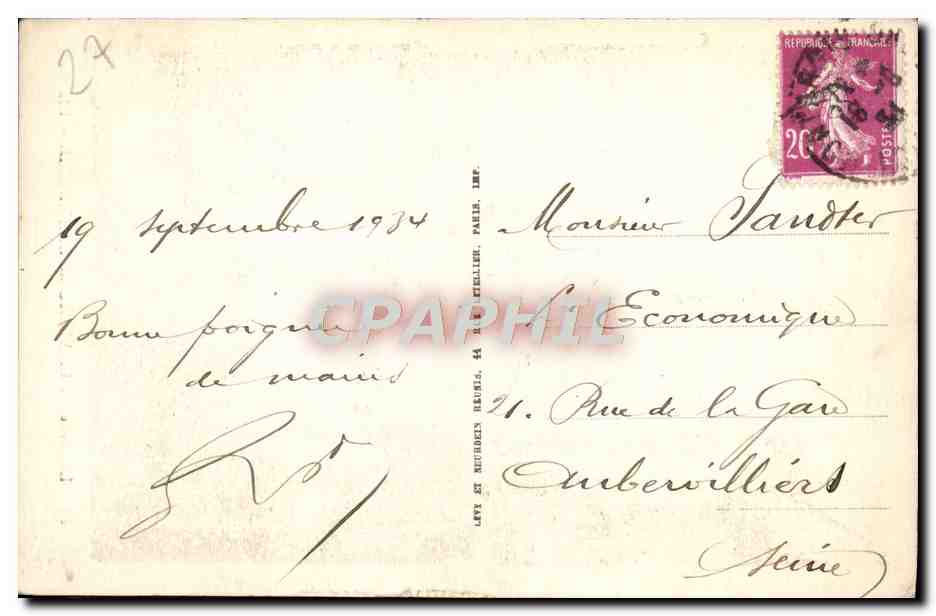 27
RÉPUBLIQUE FRANÇAISE
20
POSTES
19 septembre 1934
Bonne poignée
de mains
LÉVY ET NEURDEIN RÉUNIS, 44 RUE LETELLIER, PARIS, IMP.
Monsieur Sandter
L'Economique
21. Rue de la Gare
Aubervilliers
Seine
CPAPHIL